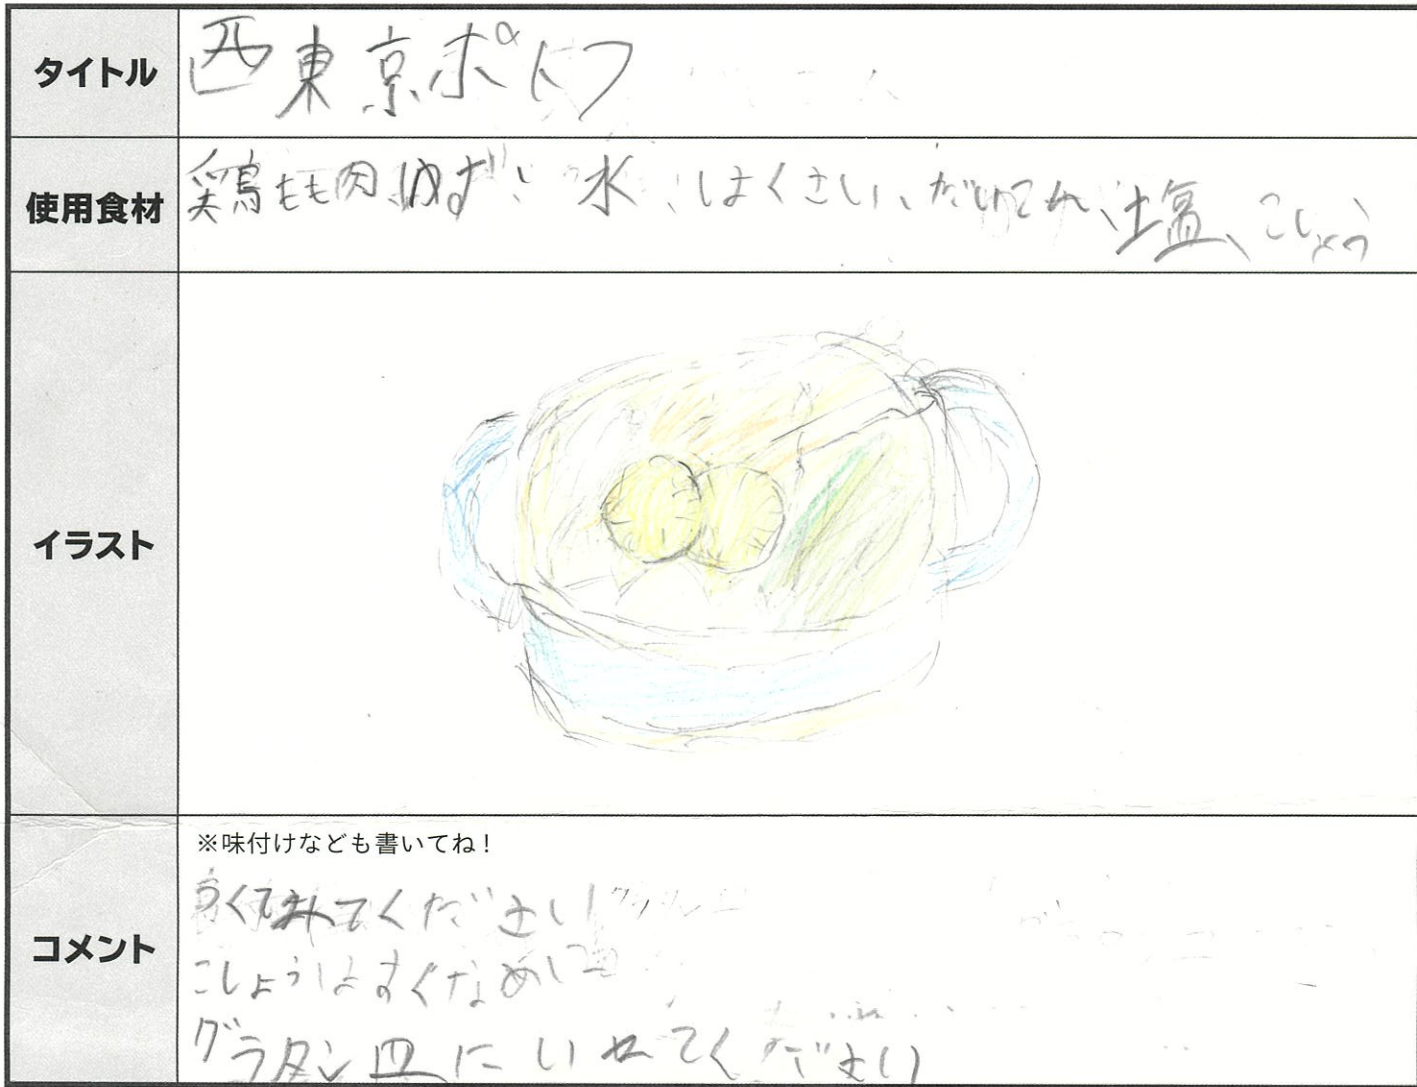 タイトル
西東京ポトフ
使用食材
鶏もも肉、ゆず、水、はくさい、だいこん、塩、こしょう
イラスト
※味付けなども書いてね！
コメント
つくてみてください
こしょうはすくなめに
グラタン皿にいれてください